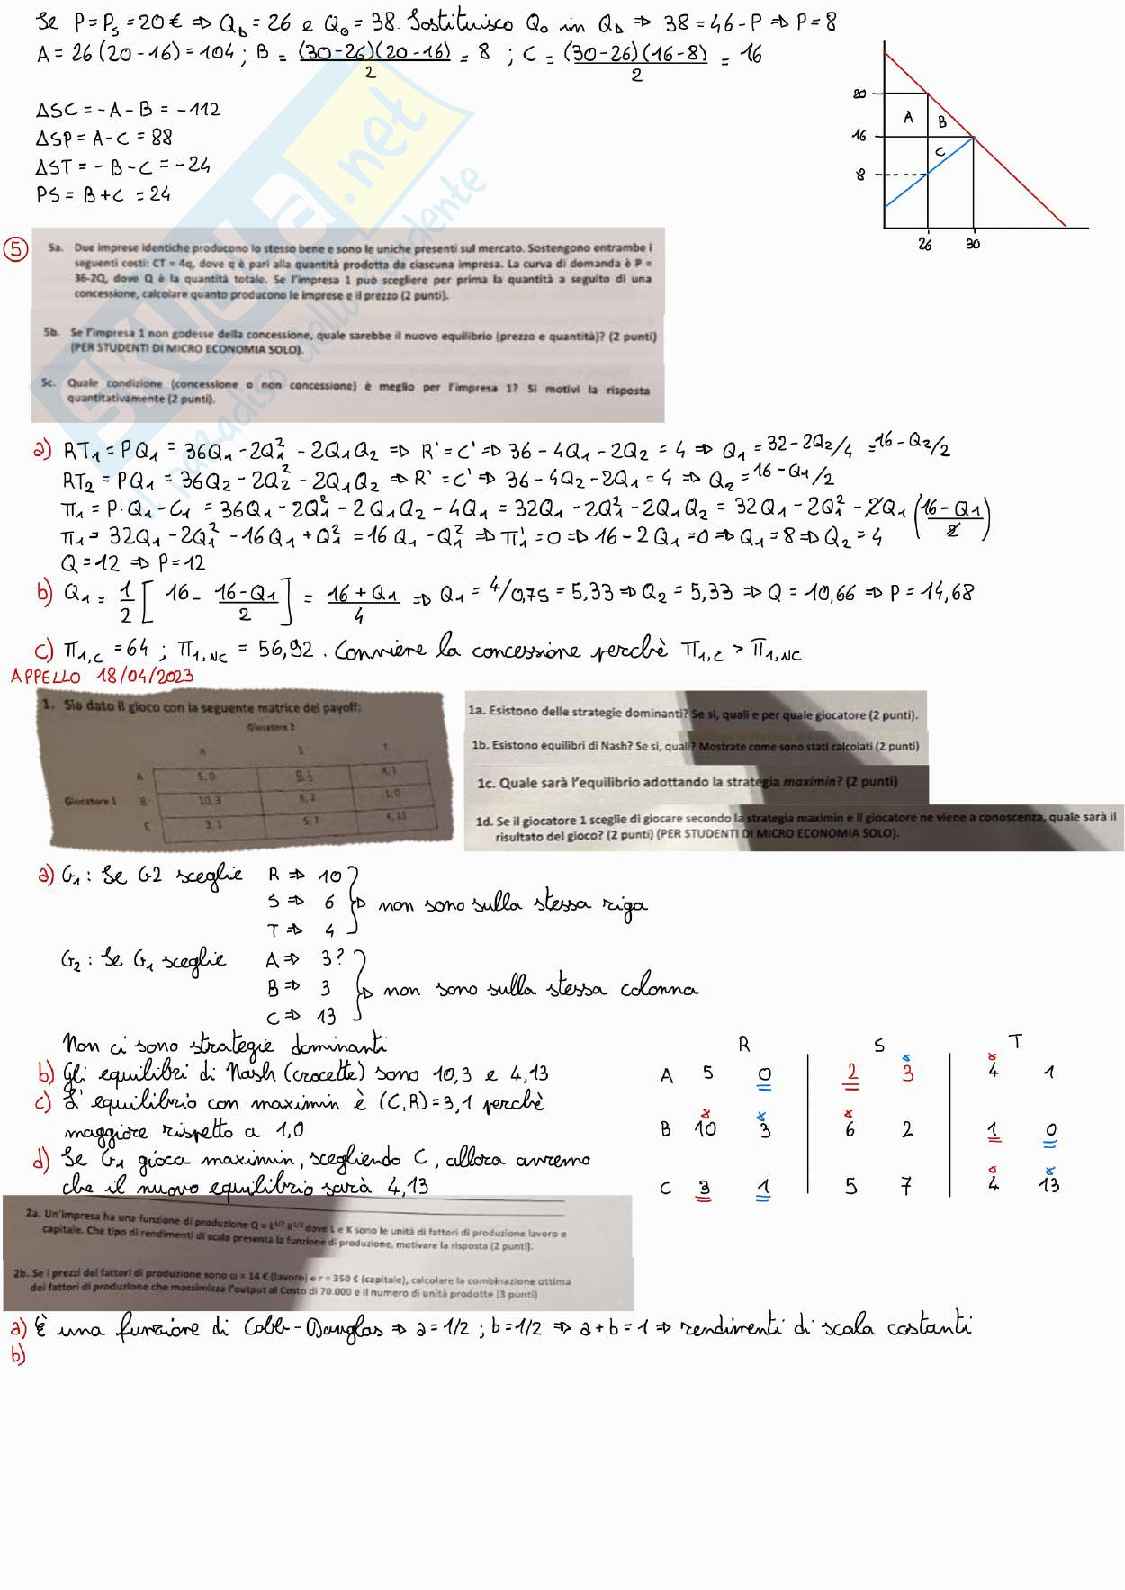 Se P = Ps = 20€ ⇒ Qb = 26 e Qo = 38. Sostituisco Qo in Qb ⇒ 38 = 46 - P ⇒ P = 8
A = 26 (20 - 16) = 104 ; B = (30-26)(20-16)/2 = 8 ; C = (30-26)(16-8)/2 = 16
ΔSC = - A - B = - 112
ΔSP = A - C = 88
ΔST = - B - C = - 24
PS = B + C = 24
20
16
8
A
B
C
26 30
5
5a. Due imprese identiche producono lo stesso bene e sono le uniche presenti sul mercato. Sostengono entrambe i
seguenti costi: CT = 4q, dove q è pari alla quantità prodotta da ciascuna impresa. La curva di domanda è P =
36-2Q, dove Q è la quantità totale. Se l'impresa 1 può scegliere per prima la quantità a seguito di una
concessione, calcolare quanto producono le imprese e il prezzo (2 punti).
5b. Se l'impresa 1 non godesse della concessione, quale sarebbe il nuovo equilibrio (prezzo e quantità)? (2 punti)
(PER STUDENTI DI MICRO ECONOMIA SOLO).
5c. Quale condizione (concessione o non concessione) è meglio per l'impresa 1? Si motivi la risposta
quantitativamente (2 punti).
a) RT1 = PQ1 = 36Q1 - 2Q1² - 2Q1Q2 ⇒ R' = C' ⇒ 36 - 4Q1 - 2Q2 = 4 ⇒ Q1 = 32 - 2Q2/4 = 16 - Q2/2
RT2 = PQ1 = 36Q2 - 2Q2² - 2Q1Q2 ⇒ R' = C' ⇒ 36 - 4Q2 - 2Q1 = 4 ⇒ Q2 = 16 - Q1/2
π1 = P·Q1 - C1 = 36Q1 - 2Q1² - 2Q1Q2 - 4Q1 = 32Q1 - 2Q1² - 2Q1Q2 = 32Q1 - 2Q1² - 2Q1 (16 - Q1/2)
π1 = 32Q1 - 2Q1² - 16Q1 + Q1² = 16Q1 - Q1² ⇒ π1' = 0 ⇒ 16 - 2Q1 = 0 ⇒ Q1 = 8 ⇒ Q2 = 4
Q = 12 ⇒ P = 12
b) Q1 = 1/2 [16 - 16 - Q1/2] = 16 + Q1/4 ⇒ Q1 = 4/0,75 = 5,33 ⇒ Q2 = 5,33 ⇒ Q = 10,66 ⇒ P = 14,68
c) π1,C = 64 ; π1,NC = 56,92. Conviene la concessione perchè π1,C > π1,NC
APPELLO 18/04/2023
1. Sia dato il gioco con la seguente matrice dei payoff:
Giocatore 2
Giocatore 1
1a. Esistono delle strategie dominanti? Se si, quali e per quale giocatore (2 punti).
1b. Esistono equilibri di Nash? Se si, quali? Mostrate come sono stati calcolati (2 punti)
1c. Quale sarà l'equilibrio adottando la strategia maximin? (2 punti)
1d. Se il giocatore 1 sceglie di giocare secondo la strategia maximin e il giocatore ne viene a conoscenza, quale sarà il
risultato del gioco? (2 punti) (PER STUDENTI DI MICRO ECONOMIA SOLO).
a) G1 : Se G2 sceglie R ⇒ 10
S ⇒ 6 ⇒ non sono sulla stessa riga
T ⇒ 4
G2 : Se G1 sceglie A ⇒ 3?
B ⇒ 3 ⇒ non sono sulla stessa colonna
C ⇒ 13
Non ci sono strategie dominanti
b) Gli equilibri di Nash (crocette) sono 10,3 e 4,13
c) L'equilibrio con maximin è (C,R) = 3,1 perchè
maggiore rispetto a 1,0
d) Se G1 gioca maximin, scegliendo C, allora avremo
che il nuovo equilibrio sarà 4,13
R S T
A 5 0 2 3 4 1
B 10 3 6 2 1 0
C 3 1 5 7 4 13
2a. Un'impresa ha una funzione di produzione Q = L1/2 K1/2 dove L e K sono le unità di fattori di produzione lavoro e
capitale. Che tipo di rendimenti di scala presenta la funzione di produzione, motivare la risposta (2 punti).
2b. Se i prezzi dei fattori di produzione sono ω = 14 € (lavoro) e r = 350 € (capitale), calcolare la combinazione ottima
dei fattori di produzione che massimizza l'output al Costo di 70.000 e il numero di unità prodotte (3 punti)
a) È una funzione di Cobb-Douglas ⇒ a = 1/2 ; b = 1/2 ⇒ a + b = 1 ⇒ rendimenti di scala costanti
b)